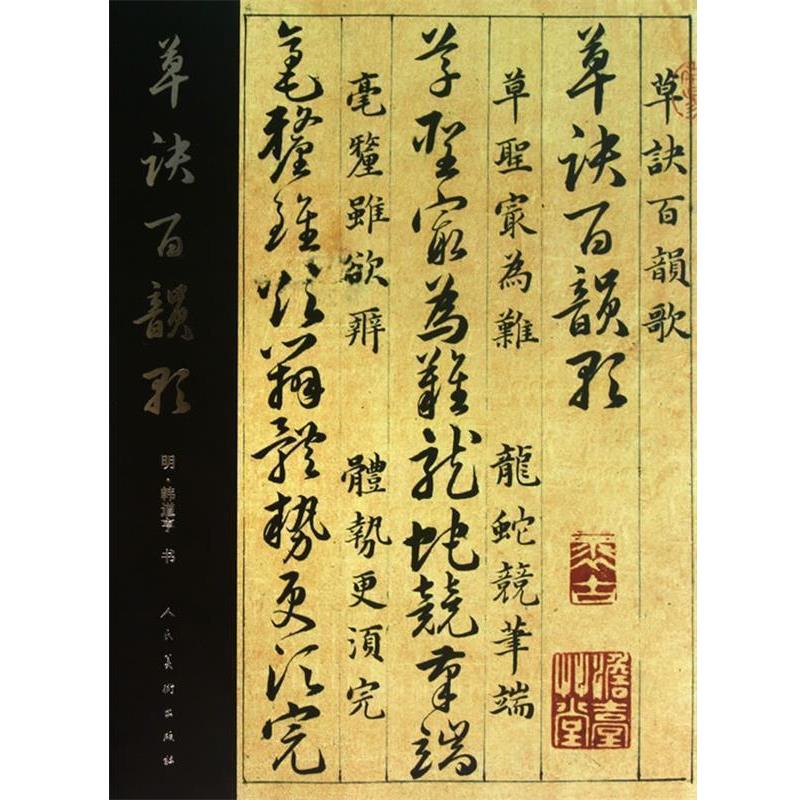 草訣百韻歌
草訣百韻歌
草聖冣為難 龍蛇競筆端
草聖冣為難龍蛇競筆端
毫釐雖欲辨 體勢更湏完
毫釐雖欲辨體勢更湏完
草訣百韻歌
明·韩道亨 书
人民美術出版社